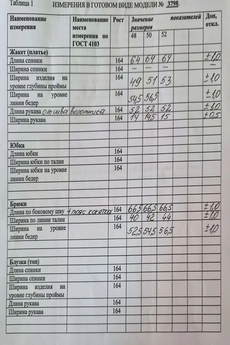 Таблица 1
ИЗМЕРЕНИЯ В ГОТОВОМ ВИДЕ МОДЕЛИ № 3798
Наименование измерения Наименование места измерения по ГОСТ 4103 Рост Значение показателей размеров Доп. откл.
48 50 52
Жакет (платье)
Длина спинки 164 64 64 64 ±1,0
Ширина спинки 164 — — — —
Ширина изделия на уровне глубины проймы 164 49 51 53 ±1,0
Ширина на уровне линии бедер 164 54,5 56,5 ±1,0
Длина рукава 164 52 52 52 ±1,0
Ширина рукава 164 14 14,5 15 ±0,5
Юбка
Длина юбки 164
Ширина юбки по талии 164
Ширина на уровне линии бедер 164
Брюки
Длина по боковому шву 164 66,5 66,5 66,5 ±1,0
Ширина по линии талии 164 40 42 44 ±1,0
Ширина на уровне линии бедер 164 52,5 54,5 56,5 ±1,0
Блузка (топ)
Длина спинки 164
Ширина спинки 164
Ширина изделия на уровне глубины проймы 164
Длина рукава 164
Ширина рукава 164